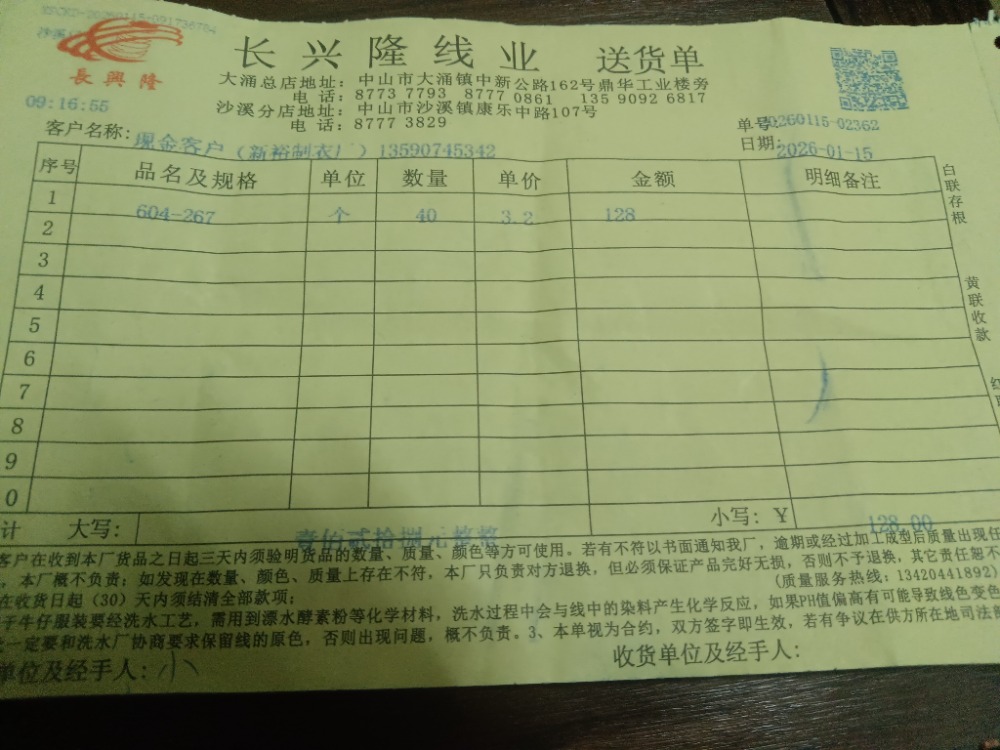 長興隆
长兴隆线业 送货单
大涌总店地址：中山市大涌镇中新公路162号鼎华工业楼旁
电 话：8773 7793 8777 0861 135 9092 6817
沙溪分店地址：中山市沙溪镇康乐中路107号
电 话：8777 3829
09:16:55
单号:20260115-02362
客户名称：现金客户（新裕制衣厂）13590745342
日期：2026-01-15
序号 品名及规格 单位 数量 单价 金额 明细备注
1 604-267 个 40 3.2 128
2
3
4
5
6
7
8
9
0
白联存根
黄联收款
红
计 大写： 壹佰贰拾捌元整 小写：￥ 128.00
客户在收到本厂货品之日起三天内须验明货品的数量、质量、颜色等方可使用。若有不符以书面通知我厂，逾期或经过加工成型后质量出现任
，本厂概不负责；如发现在数量、颜色、质量上存在不符，本厂只负责对方退换，但必须保证产品完好无损，否则不予退换，其它责任恕不
(质量服务热线：13420441892)
在收货日起（30）天内须结清全部款项；
于牛仔服装要经洗水工艺，需用到漂水酵素粉等化学材料，洗水过程中会与线中的染料产生化学反应，如果PH值偏高有可能导致线色变色
一定要和洗水厂协商要求保留线的原色，否则出现问题，概不负责。3、本单视为合约，双方签字即生效，若有争议在供方所在地司法
单位及经手人：
收货单位及经手人：